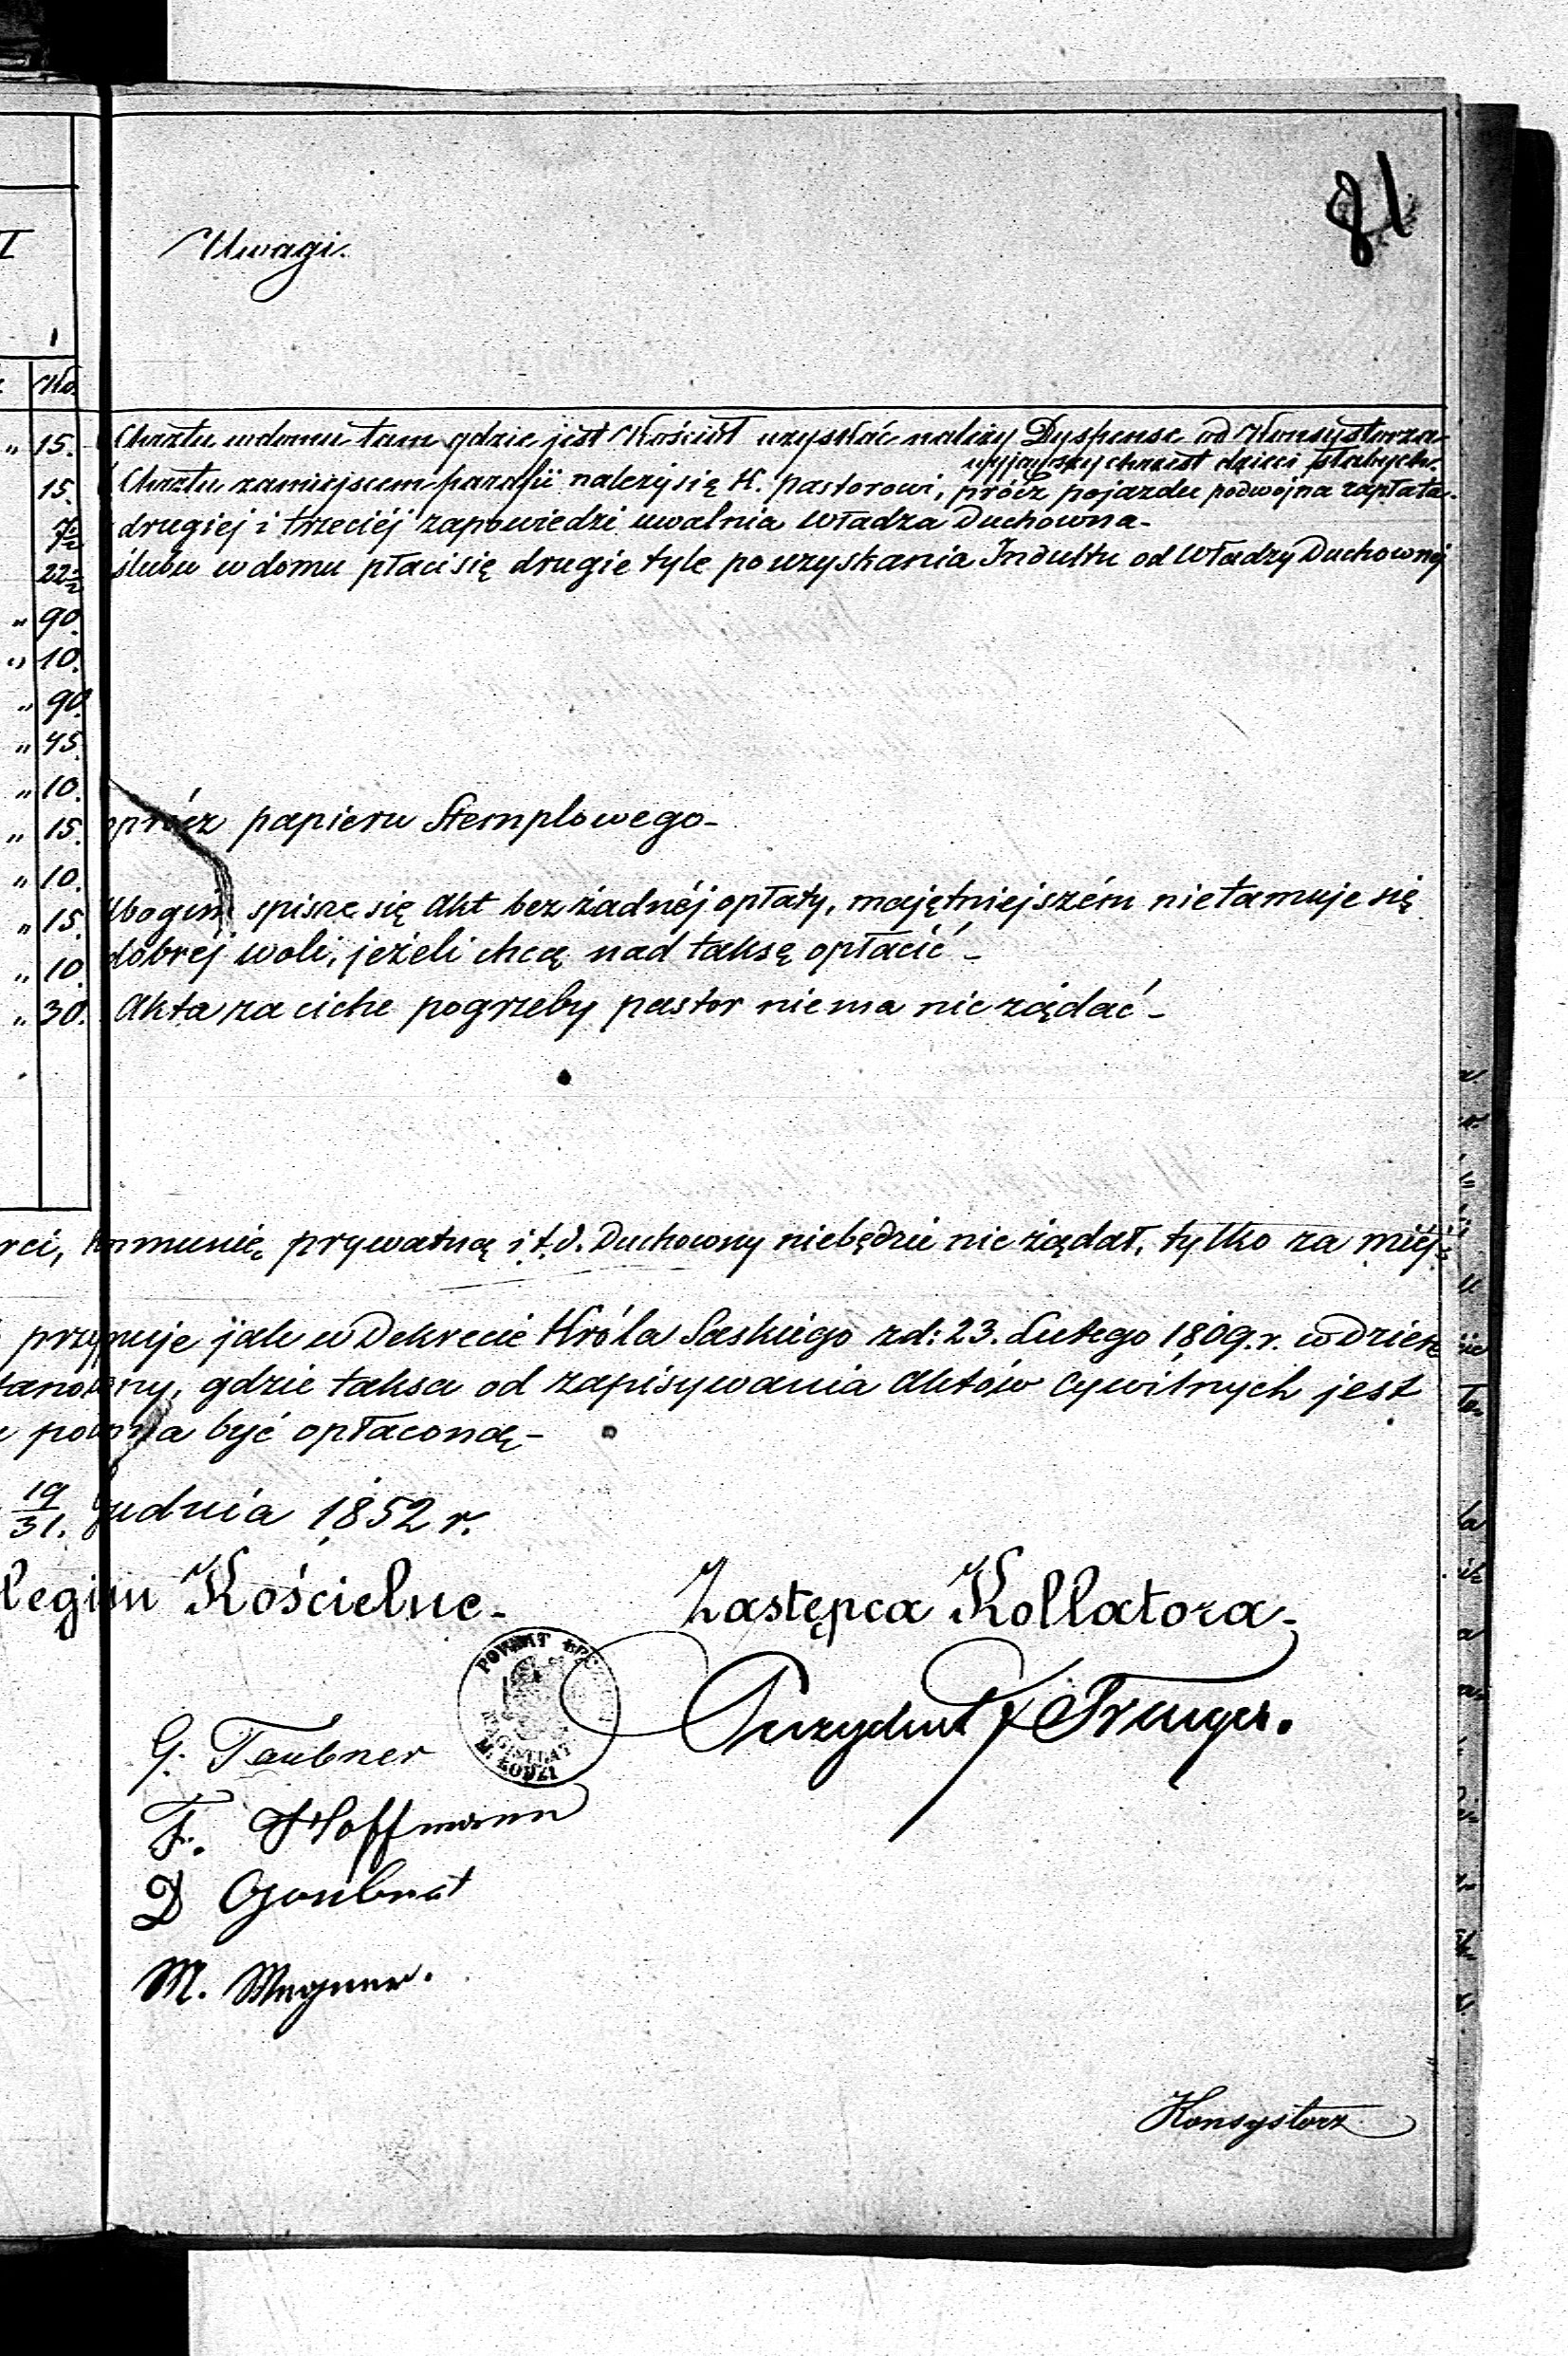 81
Uwagi.
1
Ko.
" 15. Chrztu w domu tam gdzie jest Kościół uzyskać należy Dyspensę od Konsystorza
wyjąwszy chrzest dzieci słabych.
15. Chrztu zamiejscem parafii należy się X. pastorowi, prócz pojazdu podwójna zapłata.
7½ drugiej i trzeciéj zapowiedzi uwalnia Władza Duchowna-
22½ ślubu w domu płaci się drugie tyle po uzyskania Indultu od Władzy Duchownéj
" 90.
" 10.
" 90.
" 45.
" 10.
" 15. oprócz papieru Stemplowego-
" 10.
" 15. Ubogim spisze się Akt bez żadnéj opłaty, majętniejszém nietamuje się
" 10. dobrej woli, jeżeli chcą nad taksę opłacić-
" 30. Akta za ciche pogrzeby pastor nie ma nic żądać-
rci, kommunię prywatną i t.d. Duchowny niebędzie nic żądał, tylko za miej
przyjmuje jak w Dekrecie Króla Saskiego zd: 23. Lutego 1809. r. w Dzien
tanowiony, gdzie taksa od zapisywania Aktów Cywilnych jest
powinna być opłaconą-
19/31. Grudnia 1852 r.
legium Kościelne- Zastępca Kollatora-
POWIAT ŁĘCZYCKI
MAGISTRAT
M. ŁODZI
Prezydent Traeger.
G. Taubner
F. Hoffmann
D
M. Wegner.
Konsystorz